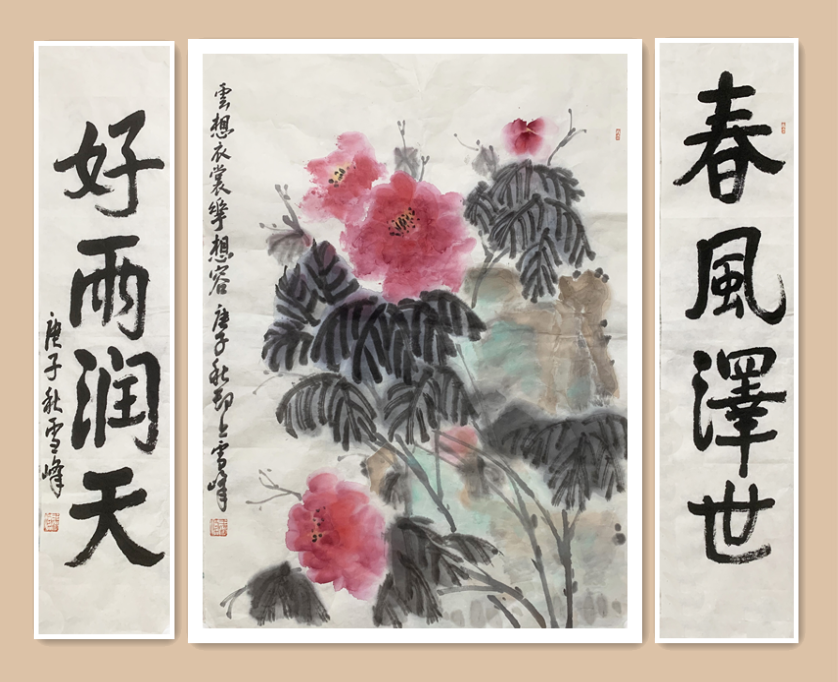 春風澤世
雲想衣裳華想容 庚子秋月上雪峰
好雨润天
庚子秋雪峰